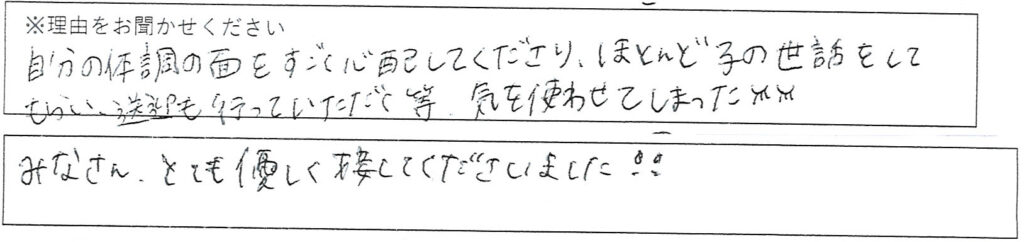 ※理由をお聞かせください
自分の体調の面をすごく心配してくださり、ほとんど子の世話をして
もらい、送迎も行っていただく等、気を使わせてしまった××
みなさん、とても優しく接してくださいました!!